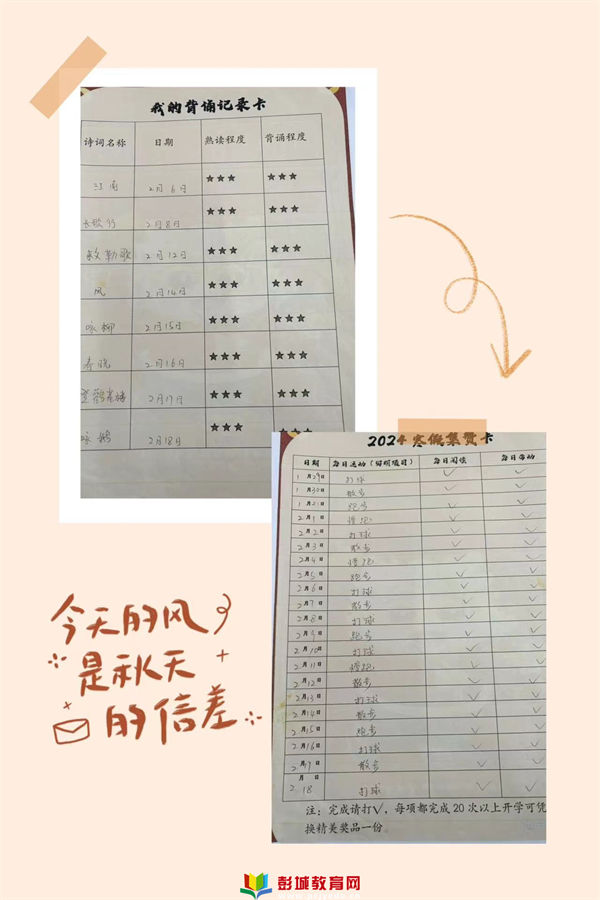 我的背诵记录卡
诗词名称 日期 熟读程度 背诵程度
江南 2月6日 ★★★ ★★★
长歌行 2月8日 ★★★ ★★★
敕勒歌 2月12日 ★★★ ★★★
风 2月14日 ★★★ ★★★
咏柳 2月15日 ★★★ ★★★
春晓 2月16日 ★★★ ★★★
登鹳雀楼 2月17日 ★★★ ★★★
咏鹅 2月18日 ★★★ ★★★
2024寒假集赞卡
日期 每日运动(写明项目) 每日阅读 每日劳动
1月29日 打球 ✓ ✓
1月30日 散步 ✓ ✓
1月31日 跑步 ✓ ✓
2月1日 慢跑 ✓ ✓
2月2日 打球 ✓ ✓
2月3日 散步 ✓ ✓
2月4日 慢跑 ✓ ✓
2月5日 跑步 ✓ ✓
2月6日 打球 ✓ ✓
2月7日 散步 ✓ ✓
2月8日 打球 ✓ ✓
2月9日 跑步 ✓ ✓
2月10日 打球 ✓ ✓
2月11日 慢跑 ✓ ✓
2月12日 散步 ✓ ✓
2月13日 打球 ✓ ✓
2月14日 散步 ✓ ✓
2月15日 跑步 ✓ ✓
2月16日 打球 ✓ ✓
2月17日 散步 ✓ ✓
2月18日 打球 ✓ ✓
注:完成请打✓,每项都完成20次以上开学可凭
换精美奖品一份。
今天的风
是秋天
的信差
彭城教育网